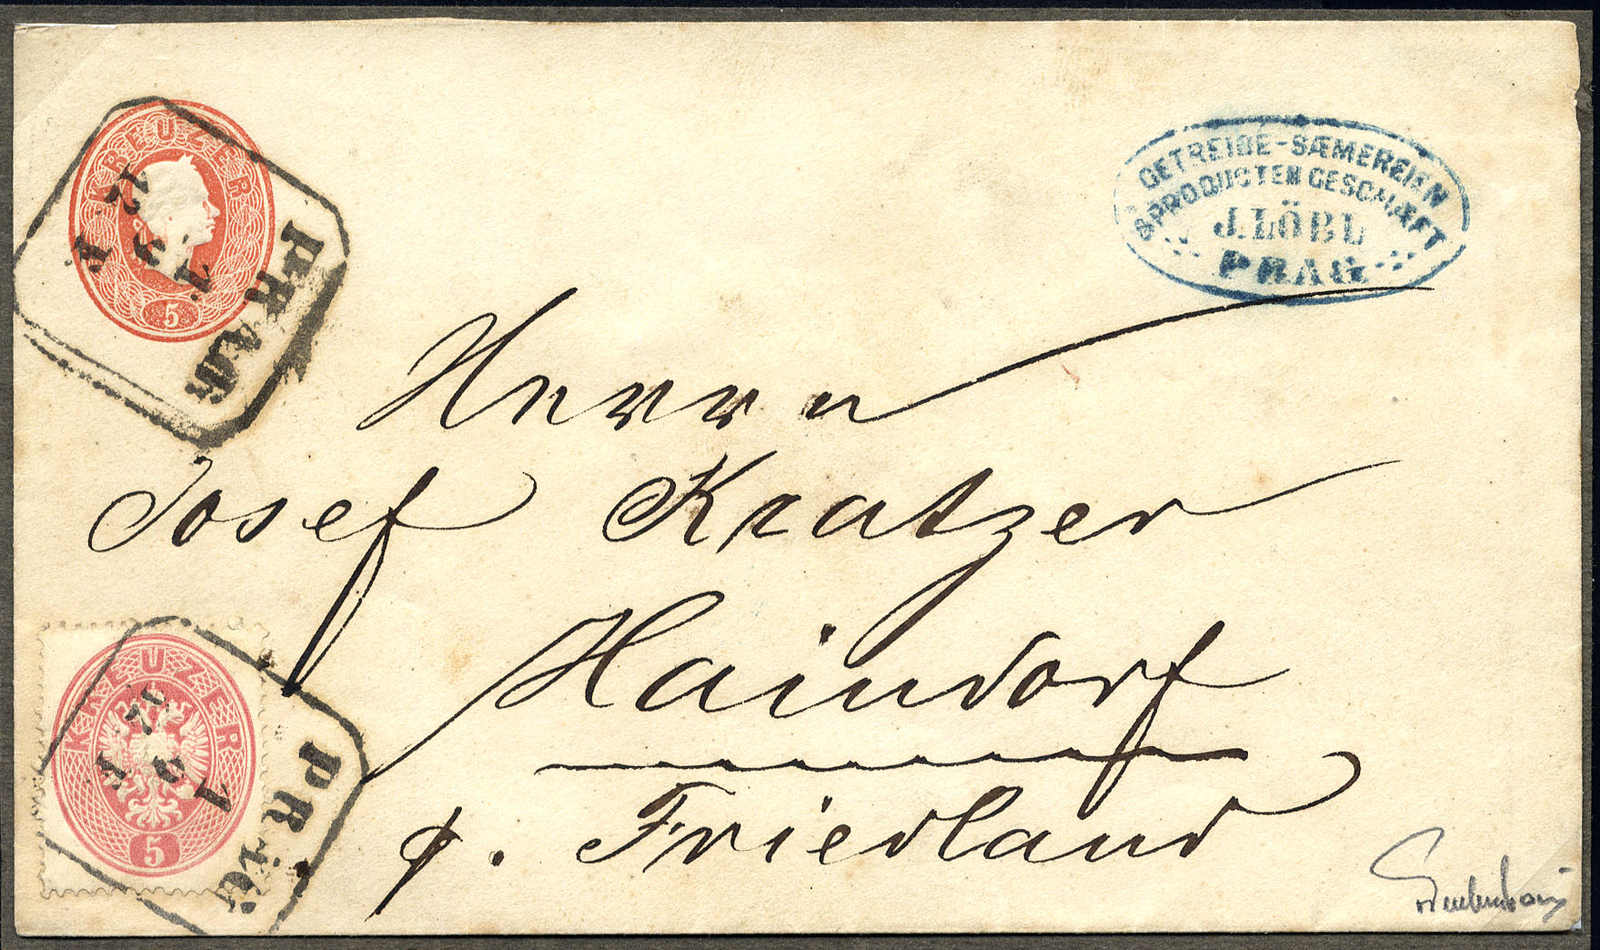 KREUZER
5
PRAG
12
9
7.
F.
GETREIDE-SÆMEREIEN
& PRODUCTENGESCHÆFT
J. LÖBL
PRAG
Herrn
Josef Kratzer
Haindorf
p. Friedland
KREUZER
5
PRAG
12
9
7
F.